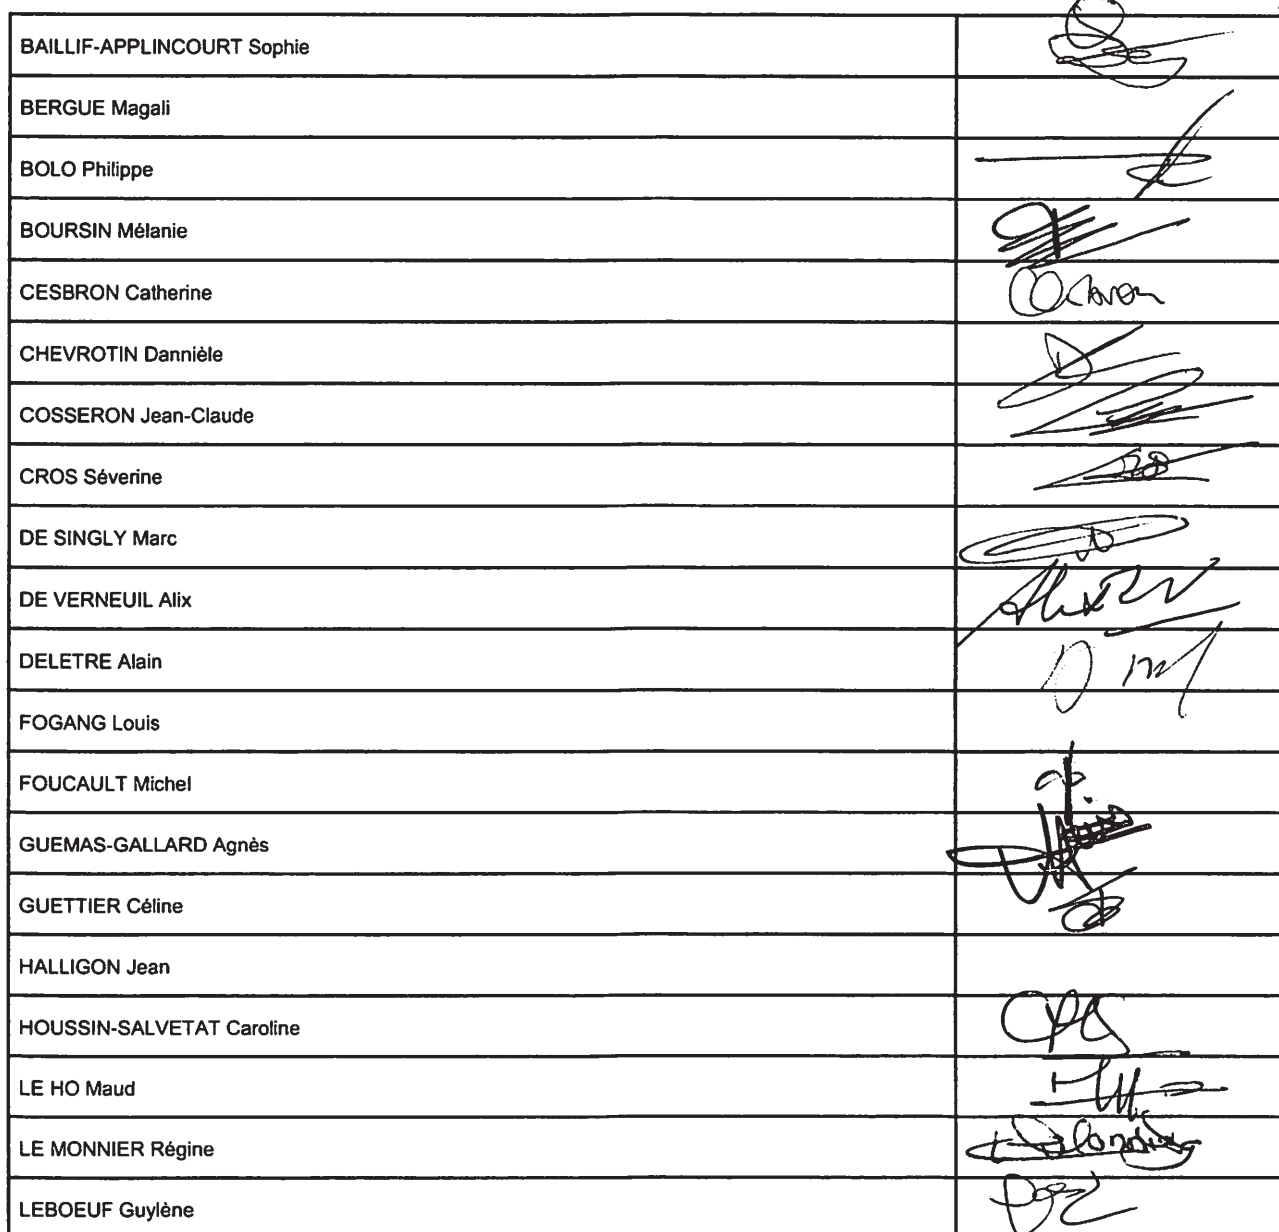 BAILLIF-APPLINCOURT Sophie
BERGUE Magali
BOLO Philippe
BOURSIN Mélanie
CESBRON Catherine
CHEVROTIN Dannièle
COSSERON Jean-Claude
CROS Séverine
DE SINGLY Marc
DE VERNEUIL Alix
DELETRE Alain
FOGANG Louis
FOUCAULT Michel
GUEMAS-GALLARD Agnès
GUETTIER Céline
HALLIGON Jean
HOUSSIN-SALVETAT Caroline
LE HO Maud
LE MONNIER Régine
LEBOEUF Guylène